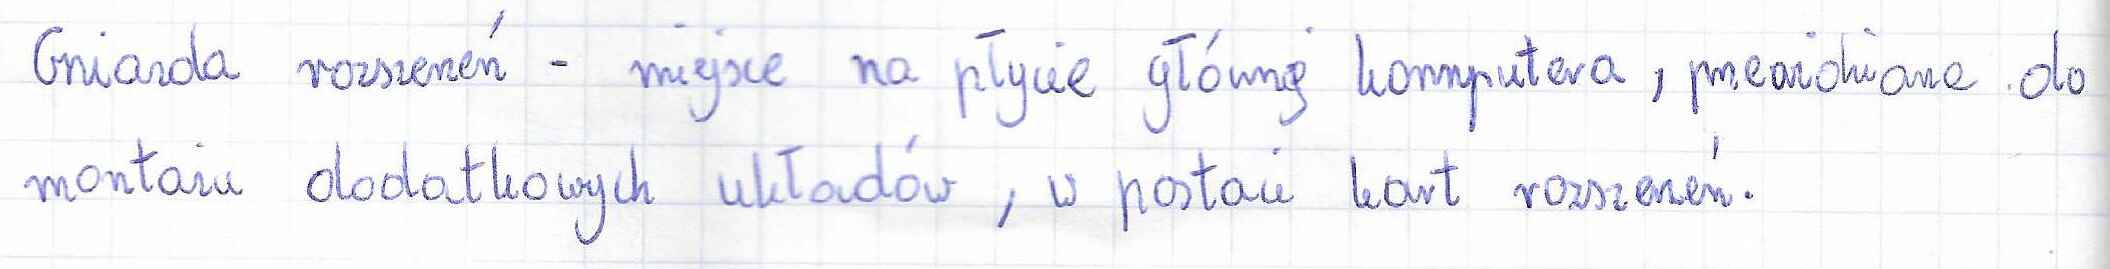 Gniazda rozszerzeń - miejsce na płycie głównej komputera, przewidziane do
montażu dodatkowych układów, w postaci kart rozszerzeń.